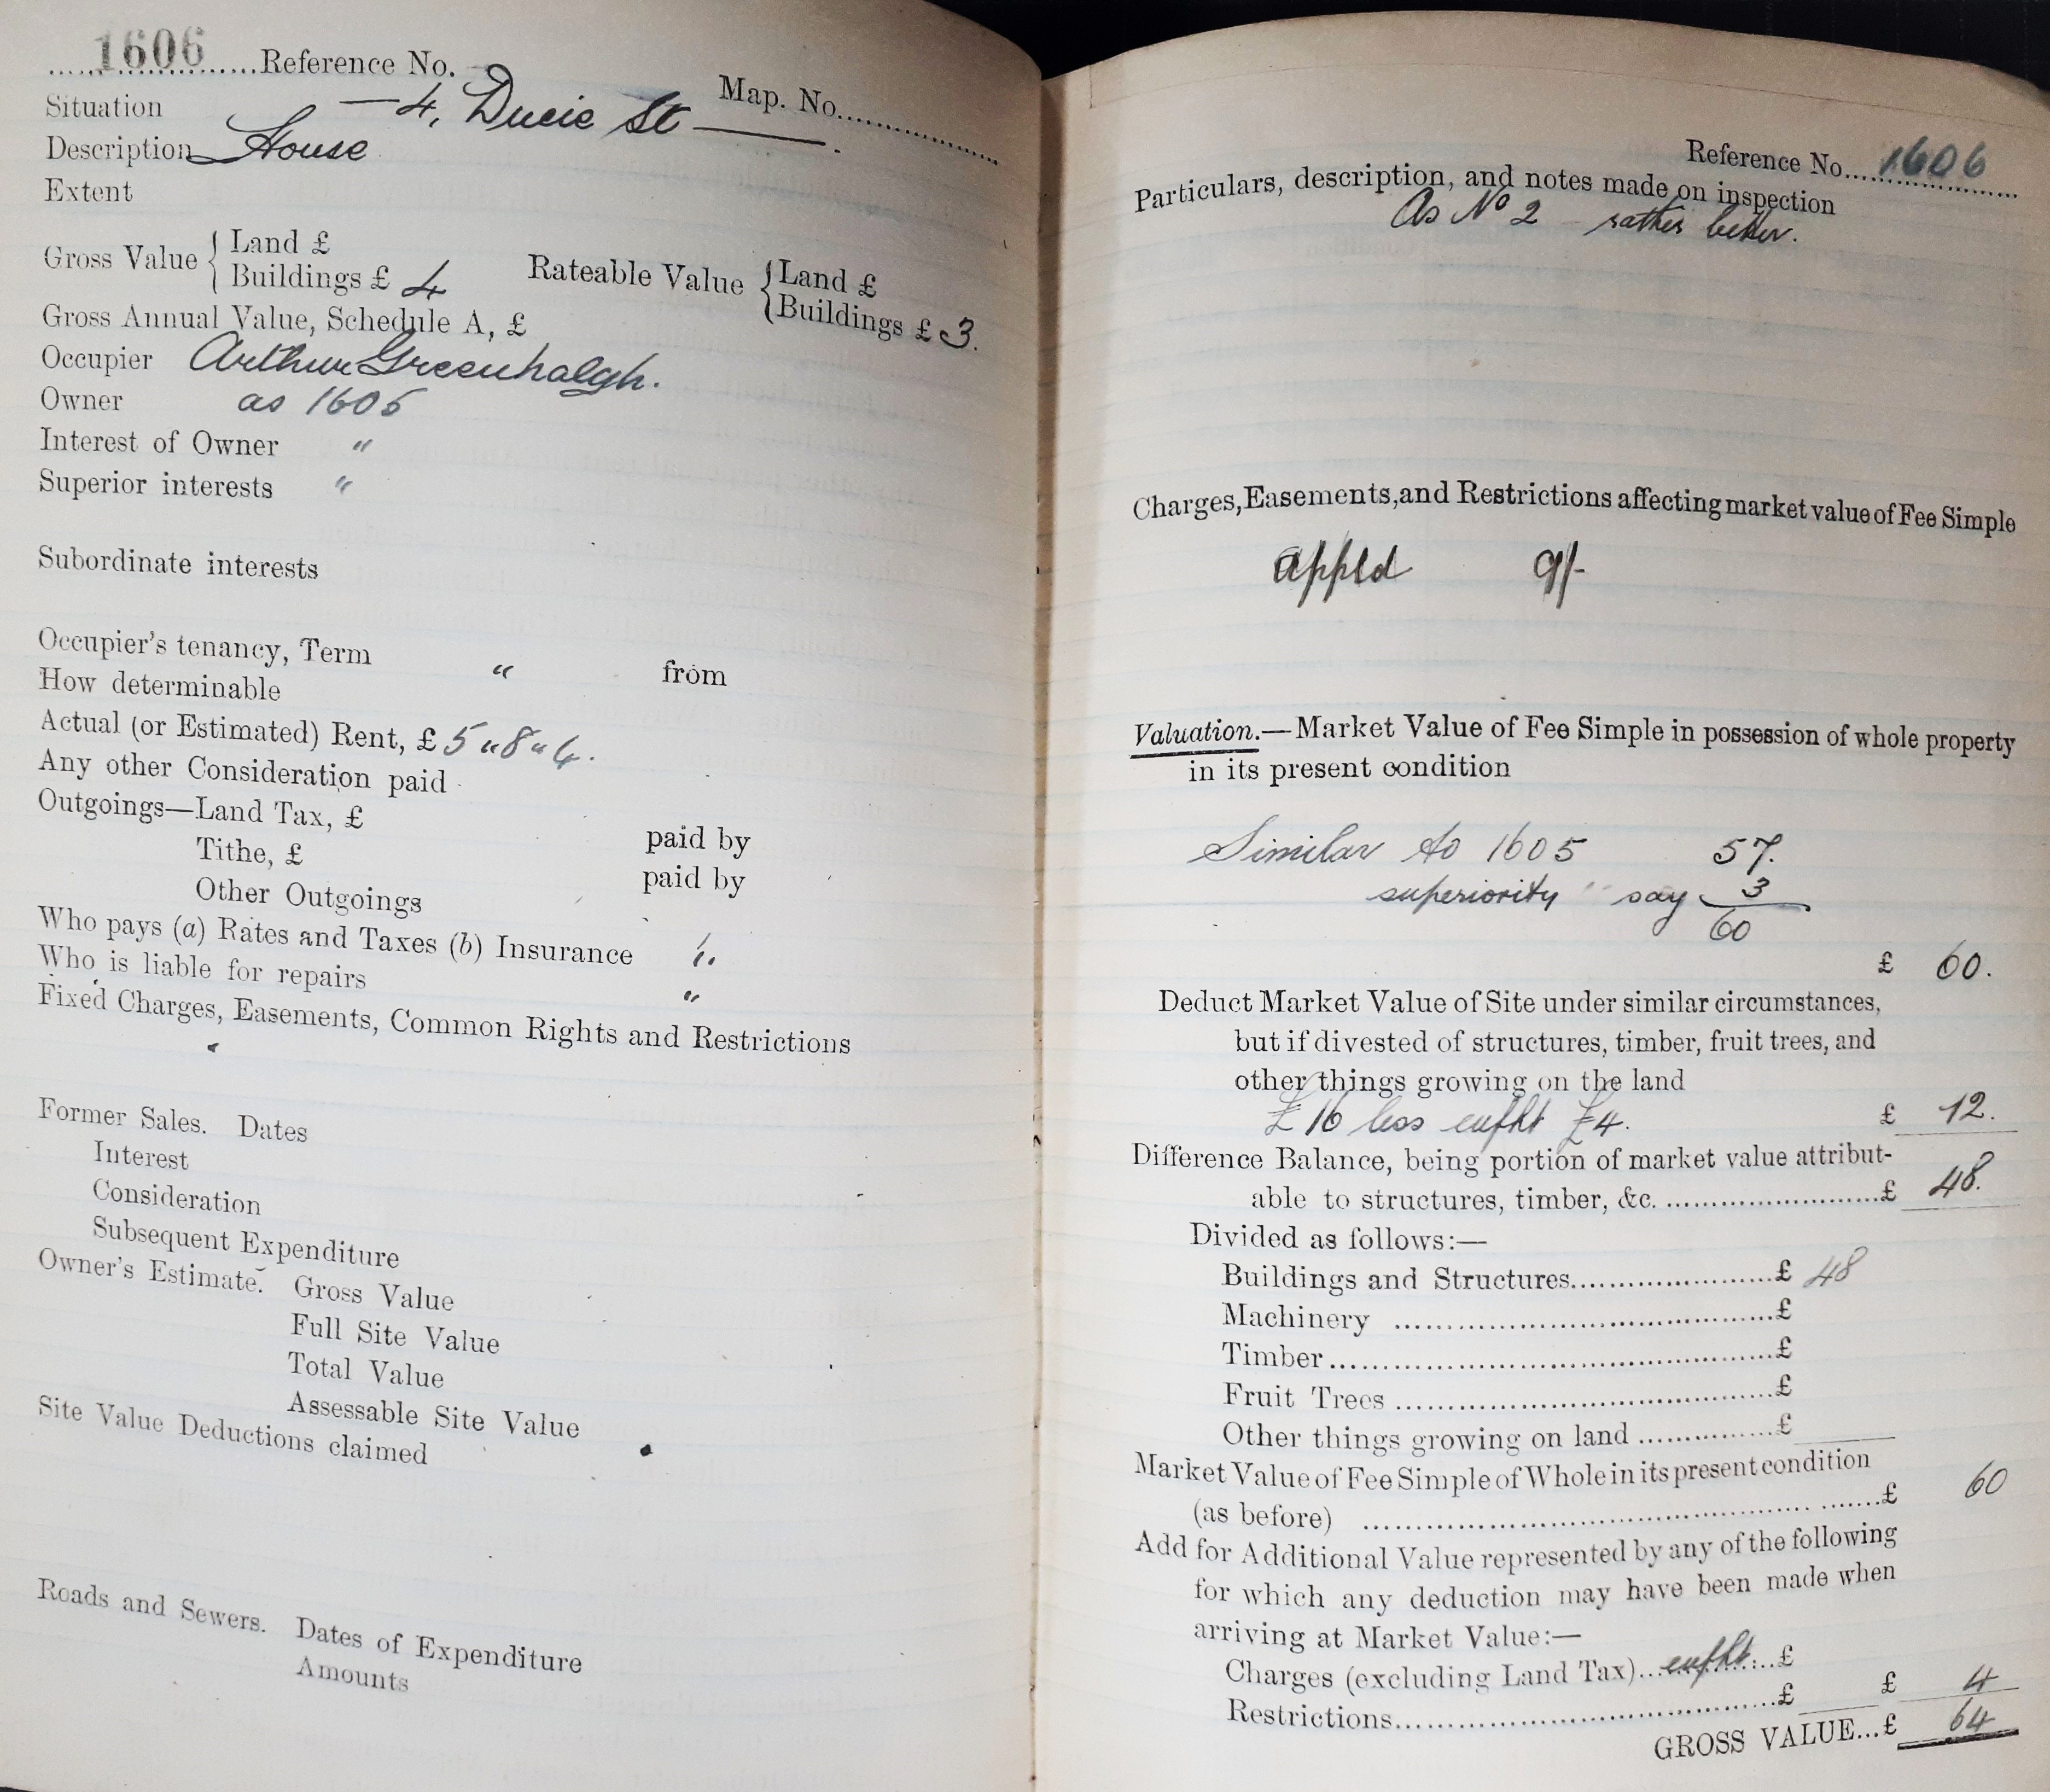 1606 Reference No. Map. No.
Situation — 4, Ducie St —.
Description House
Extent
Gross Value { Land £
Buildings £ 4 Rateable Value { Land £
Buildings £ 3.
Gross Annual Value, Schedule A, £
Occupier Arthur Greenhalgh.
Owner as 1605
Interest of Owner "
Superior interests "
Subordinate interests
Occupier's tenancy, Term " from
How determinable
Actual (or Estimated) Rent, £ 5 " 8 " 4.
Any other Consideration paid
Outgoings—Land Tax, £ paid by
Tithe, £ paid by
Other Outgoings
Who pays (a) Rates and Taxes (b) Insurance "
Who is liable for repairs "
Fixed Charges, Easements, Common Rights and Restrictions
Former Sales. Dates
Interest
Consideration
Subsequent Expenditure
Owner's Estimate. Gross Value
Full Site Value
Total Value
Assessable Site Value
Site Value Deductions claimed
Roads and Sewers. Dates of Expenditure
Amounts
Reference No. 1606
Particulars, description, and notes made on inspection
As No 2 - rather better.
Charges, Easements, and Restrictions affecting market value of Fee Simple
appld 9/-
Valuation.—Market Value of Fee Simple in possession of whole property
in its present condition
Similar to 1605 57.
superiority say 3
60
£ 60.
Deduct Market Value of Site under similar circumstances,
but if divested of structures, timber, fruit trees, and
other things growing on the land
£16 less eufht £4. £ 12.
Difference Balance, being portion of market value attribut-
able to structures, timber, &c. £ 48.
Divided as follows:—
Buildings and Structures £ 48
Machinery £
Timber £
Fruit Trees £
Other things growing on land £
Market Value of Fee Simple of Whole in its present condition
(as before) £ 60
Add for Additional Value represented by any of the following
for which any deduction may have been made when
arriving at Market Value:—
Charges (excluding Land Tax) eufht £
Restrictions £ £ 4
GROSS VALUE...£ 64